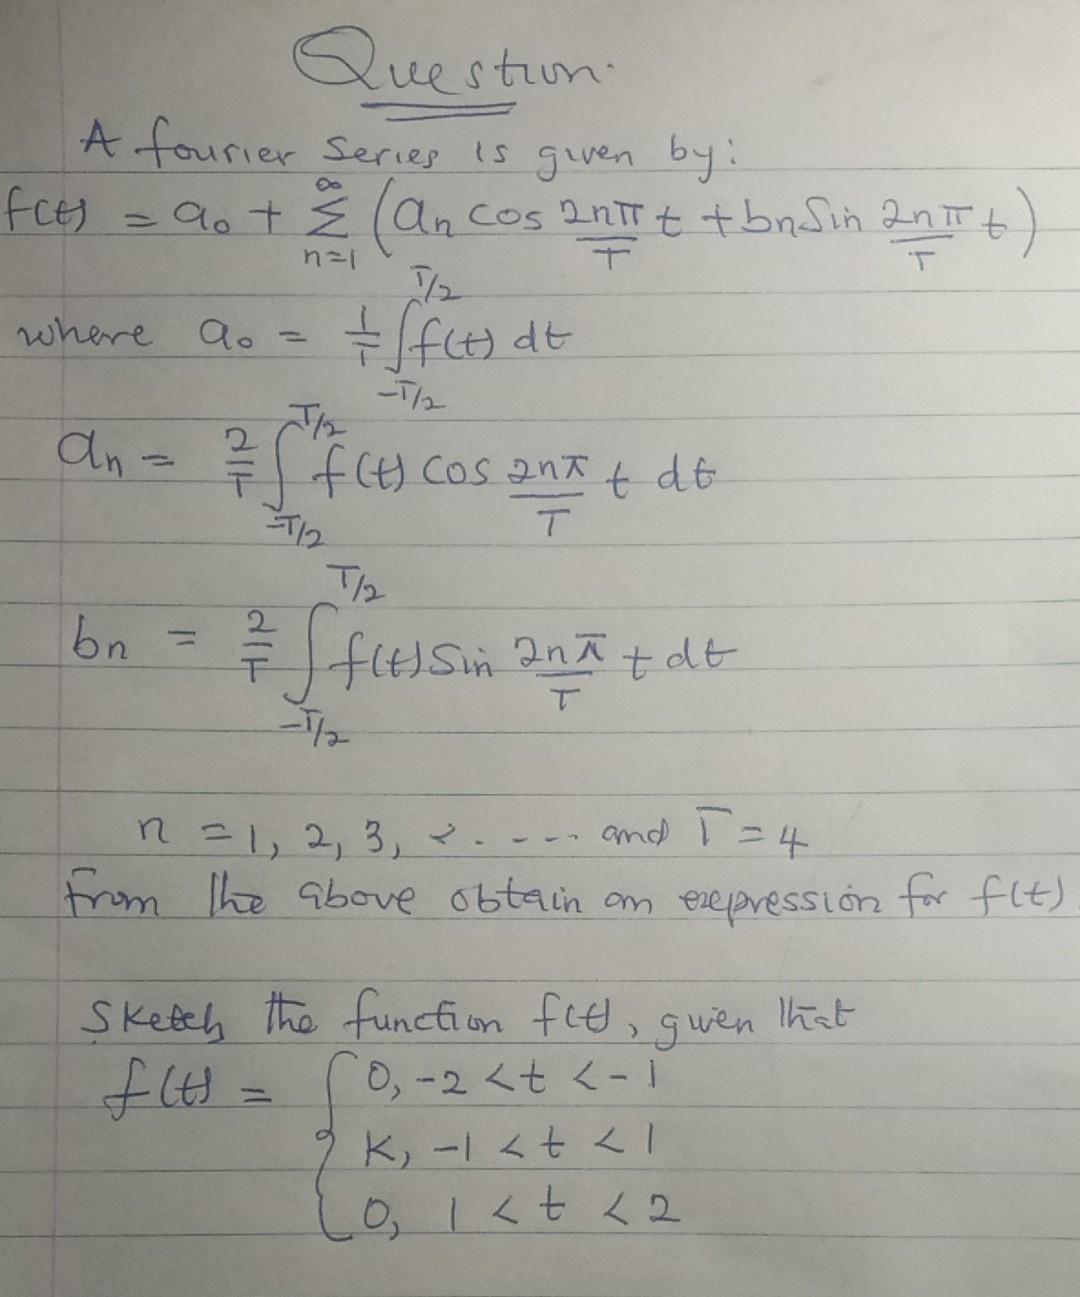 Question.
A fourier Series is given by:
f(t) = a₀ + ∞ Σ n=1 (an cos 2nπ/T t + bn Sin 2nπ/T t)
where a₀ = 1/T ∫ T/2 -T/2 f(t) dt
an = 2/T ∫ T/2 -T/2 f(t) cos 2nπ/T t dt
bn = 2/T ∫ T/2 -T/2 f(t) Sin 2nπ/T t dt
n = 1, 2, 3, ..... and T = 4
From the above obtain an expression for f(t).
Sketch the function f(t), given that
f(t) = { 0, -2 < t < -1
K, -1 < t < 1
0, 1 < t < 2